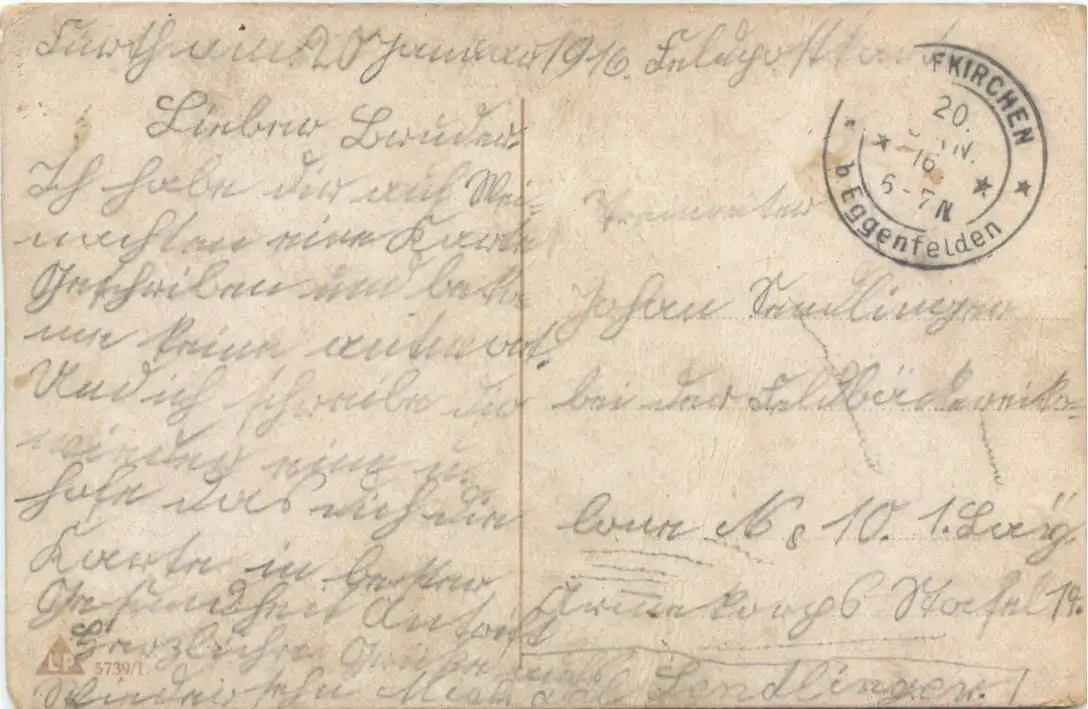 Fürth am 20 Januar 1916. Feldpostkart
Lieber Bruder.
Ich habe dir auf Wei-
nachten eine Karte
Geschriben und beko
me keine antwort.
Und ich schreibe dir
wieder eine u.
hofe das dich die
Karte in bester
Gesundheit Antrift
Herzliche Grüße
Wiedersehn Sendlinger.
FKIRCHEN
20.
JAN.
16
6-7N
b. Eggenfelden
Johan Sendlinger
bei der Feldbäckereiko-
lone N 8 10. 1. Bay.
Armekorps Stafel 14.
LP 5739/1.